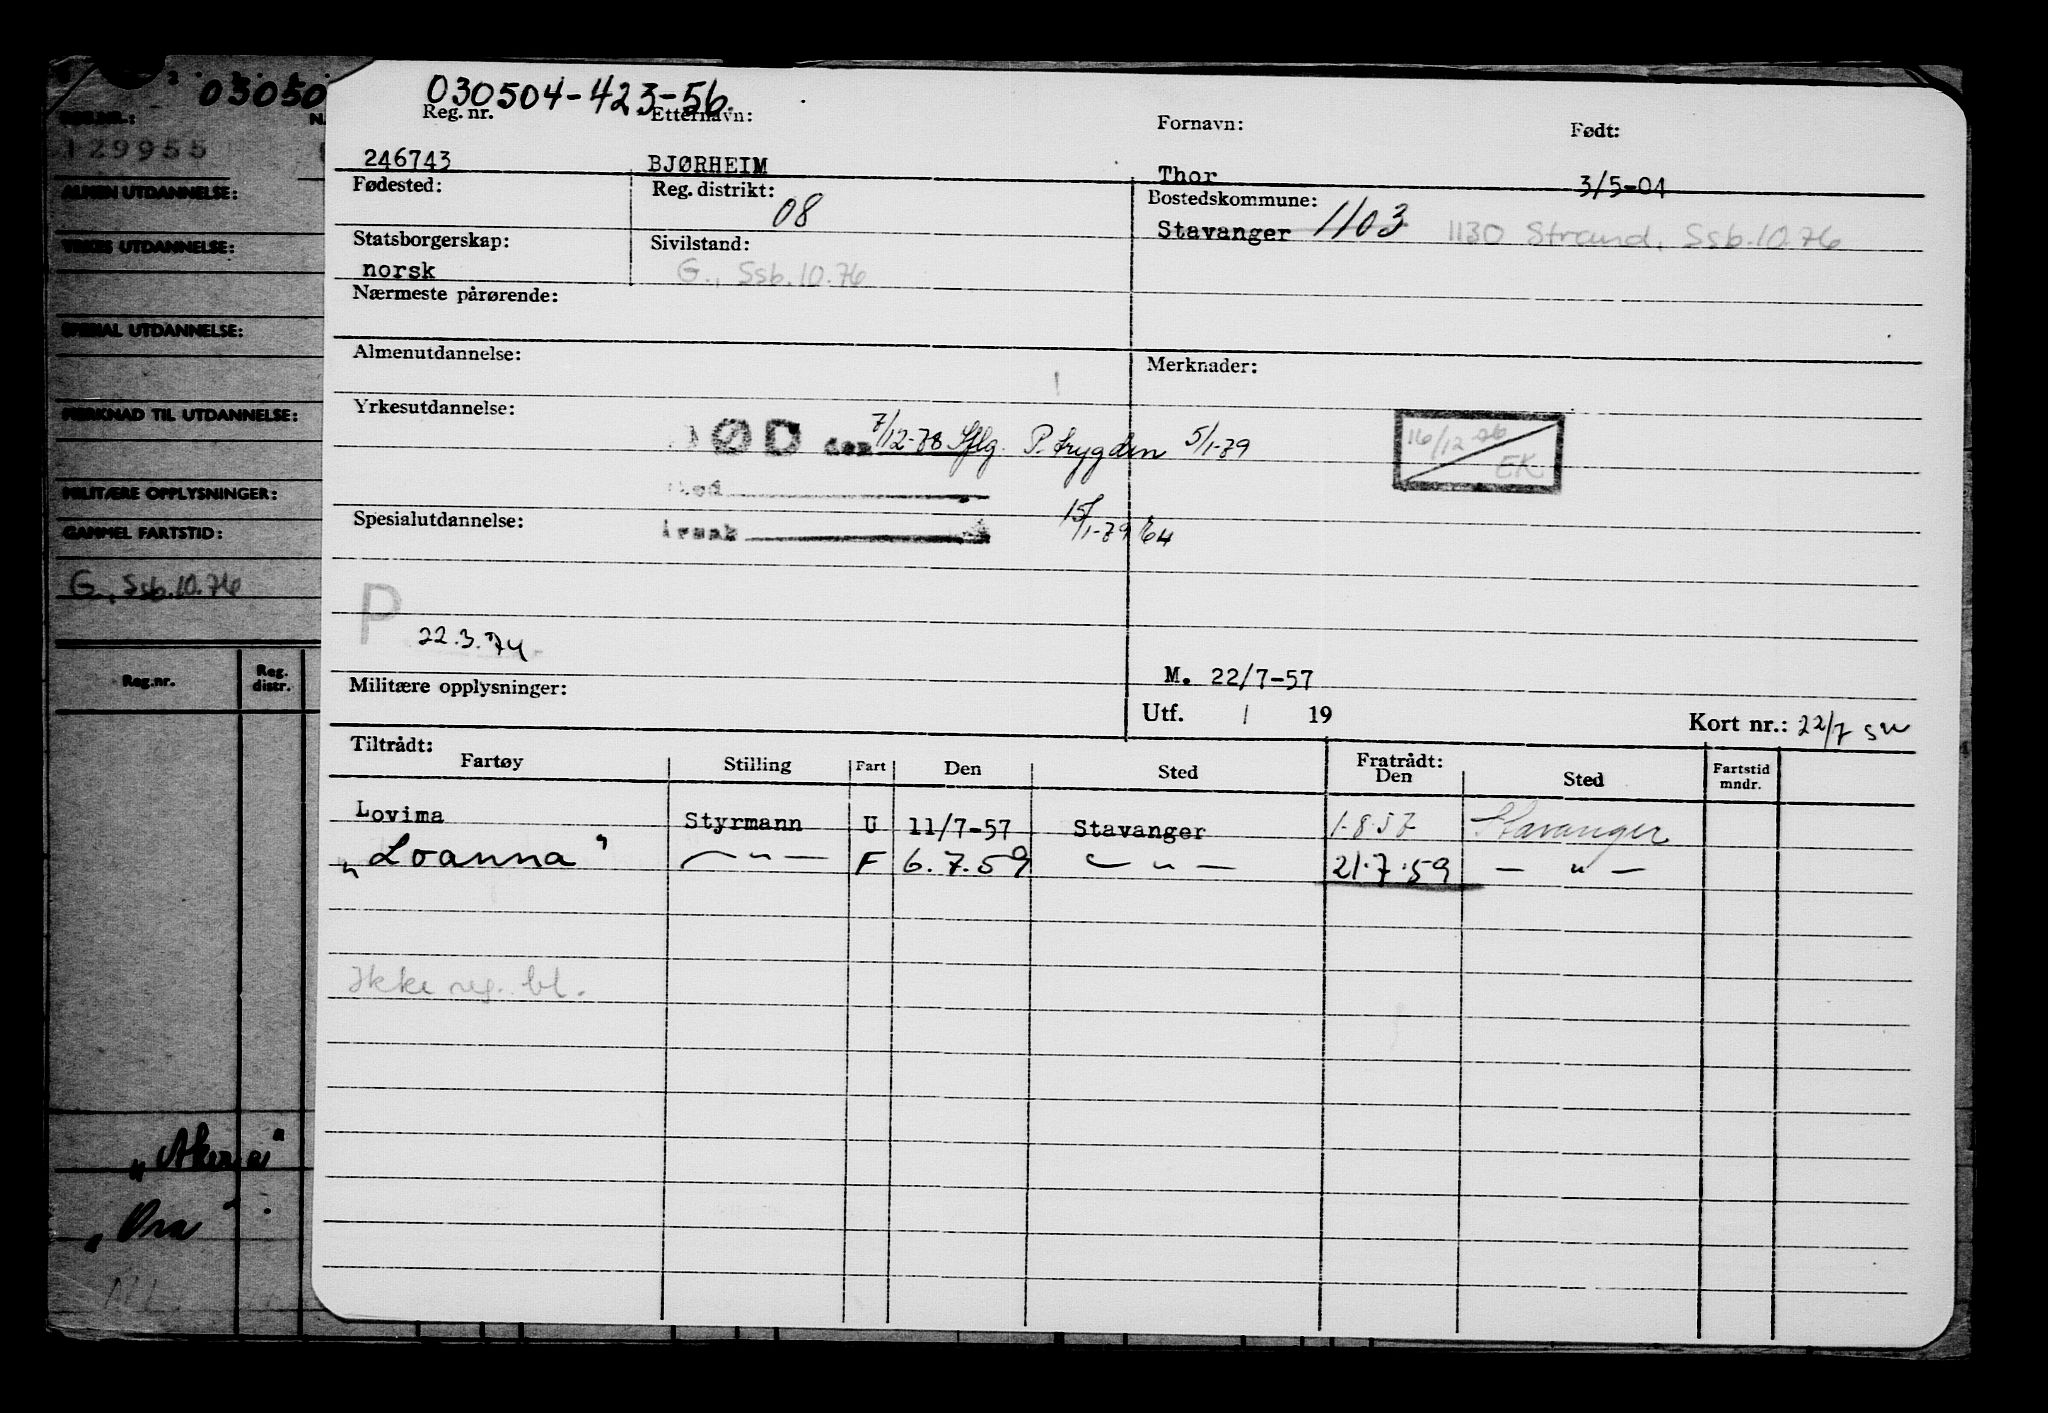 030504-423-56.
Reg. nr. Etternavn: Fornavn: Født:
246743 BJØRHEIM Thor 3/5-04
Fødested: Reg. distrikt: 08 Bostedskommune:
Stavanger 1103 1130 Strand, Ssb.10.76
Statsborgerskap: Sivilstand:
norsk G., Ssb.10.76
Nærmeste pårørende:
Almenutdannelse: Merknader:
Yrkesutdannelse:
DØD den 7/12-78 Iflg. P.trygden 5/1-79
16/12-76
EK.
Sted
Spesialutdannelse: Årsak 15/1-79
P
22.3.74
M. 22/7-57
Militære opplysninger:
Utf. / 19 Kort nr.: 22/7
Tiltrådt: Fratrådt:
Fartøy Stilling Fart Den Sted Den Sted Fartstid mndr.
Lovima Styrmann U 11/7-57 Stavanger 1.8.57 Stavanger
"Loanna" — " — F 6.7.59 — " — 21.7.59 — " —
Ikke reg. bl.
03050
REG.NR.:
129955
ALMEN UTDANNELSE:
YRKES UTDANNELSE:
SPESIAL UTDANNELSE:
MERKNAD TIL UTDANNELSE:
MILITÆRE OPPLYSNINGER:
GAMMEL FARTSTID:
G., Ssb.10.76
Reg.nr. Reg. distr.